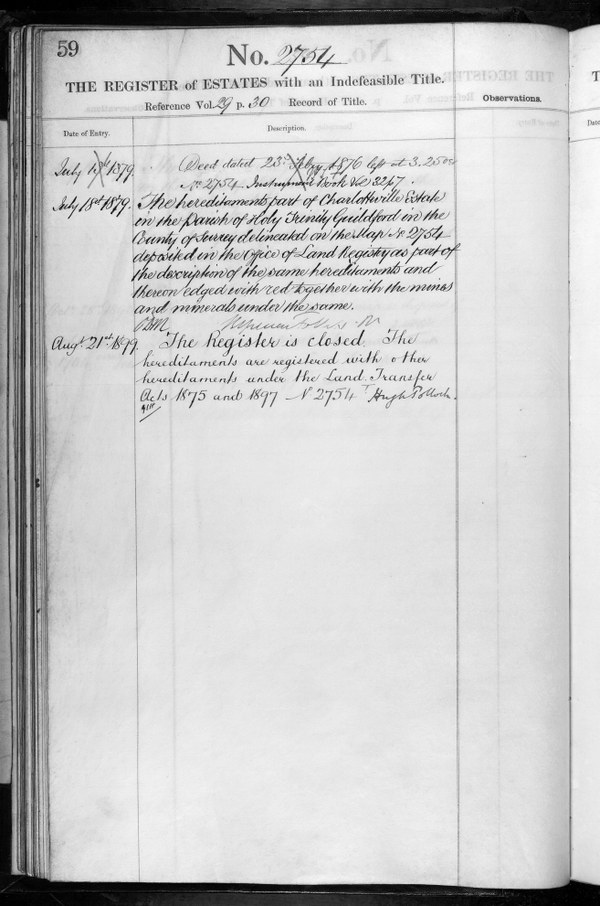 59
No. 2754
THE REGISTER of ESTATES with an Indefeasible Title.
Reference Vol. 29 p. 30 Record of Title.
Observations.
Date of Entry.
Description.
July 1879. Deed dated 23rd Feby 1876 left at 3.25
No 2754 Instrument Book Vol 32
July 18th 1879. The hereditaments part of Charlotteville Estate
in the Parish of Holy Trinity Guildford in the
County of Surrey delineated on the Map No 2754
deposited in the Office of Land Registry as part of
the description of the same hereditaments and
thereon edged with red together with the mines
and minerals under the same.
Augt 21st 1899. The Register is closed. The
hereditaments are registered with other
hereditaments under the Land Transfer
Acts 1875 and 1897 No 2754 Hugh Pollock.